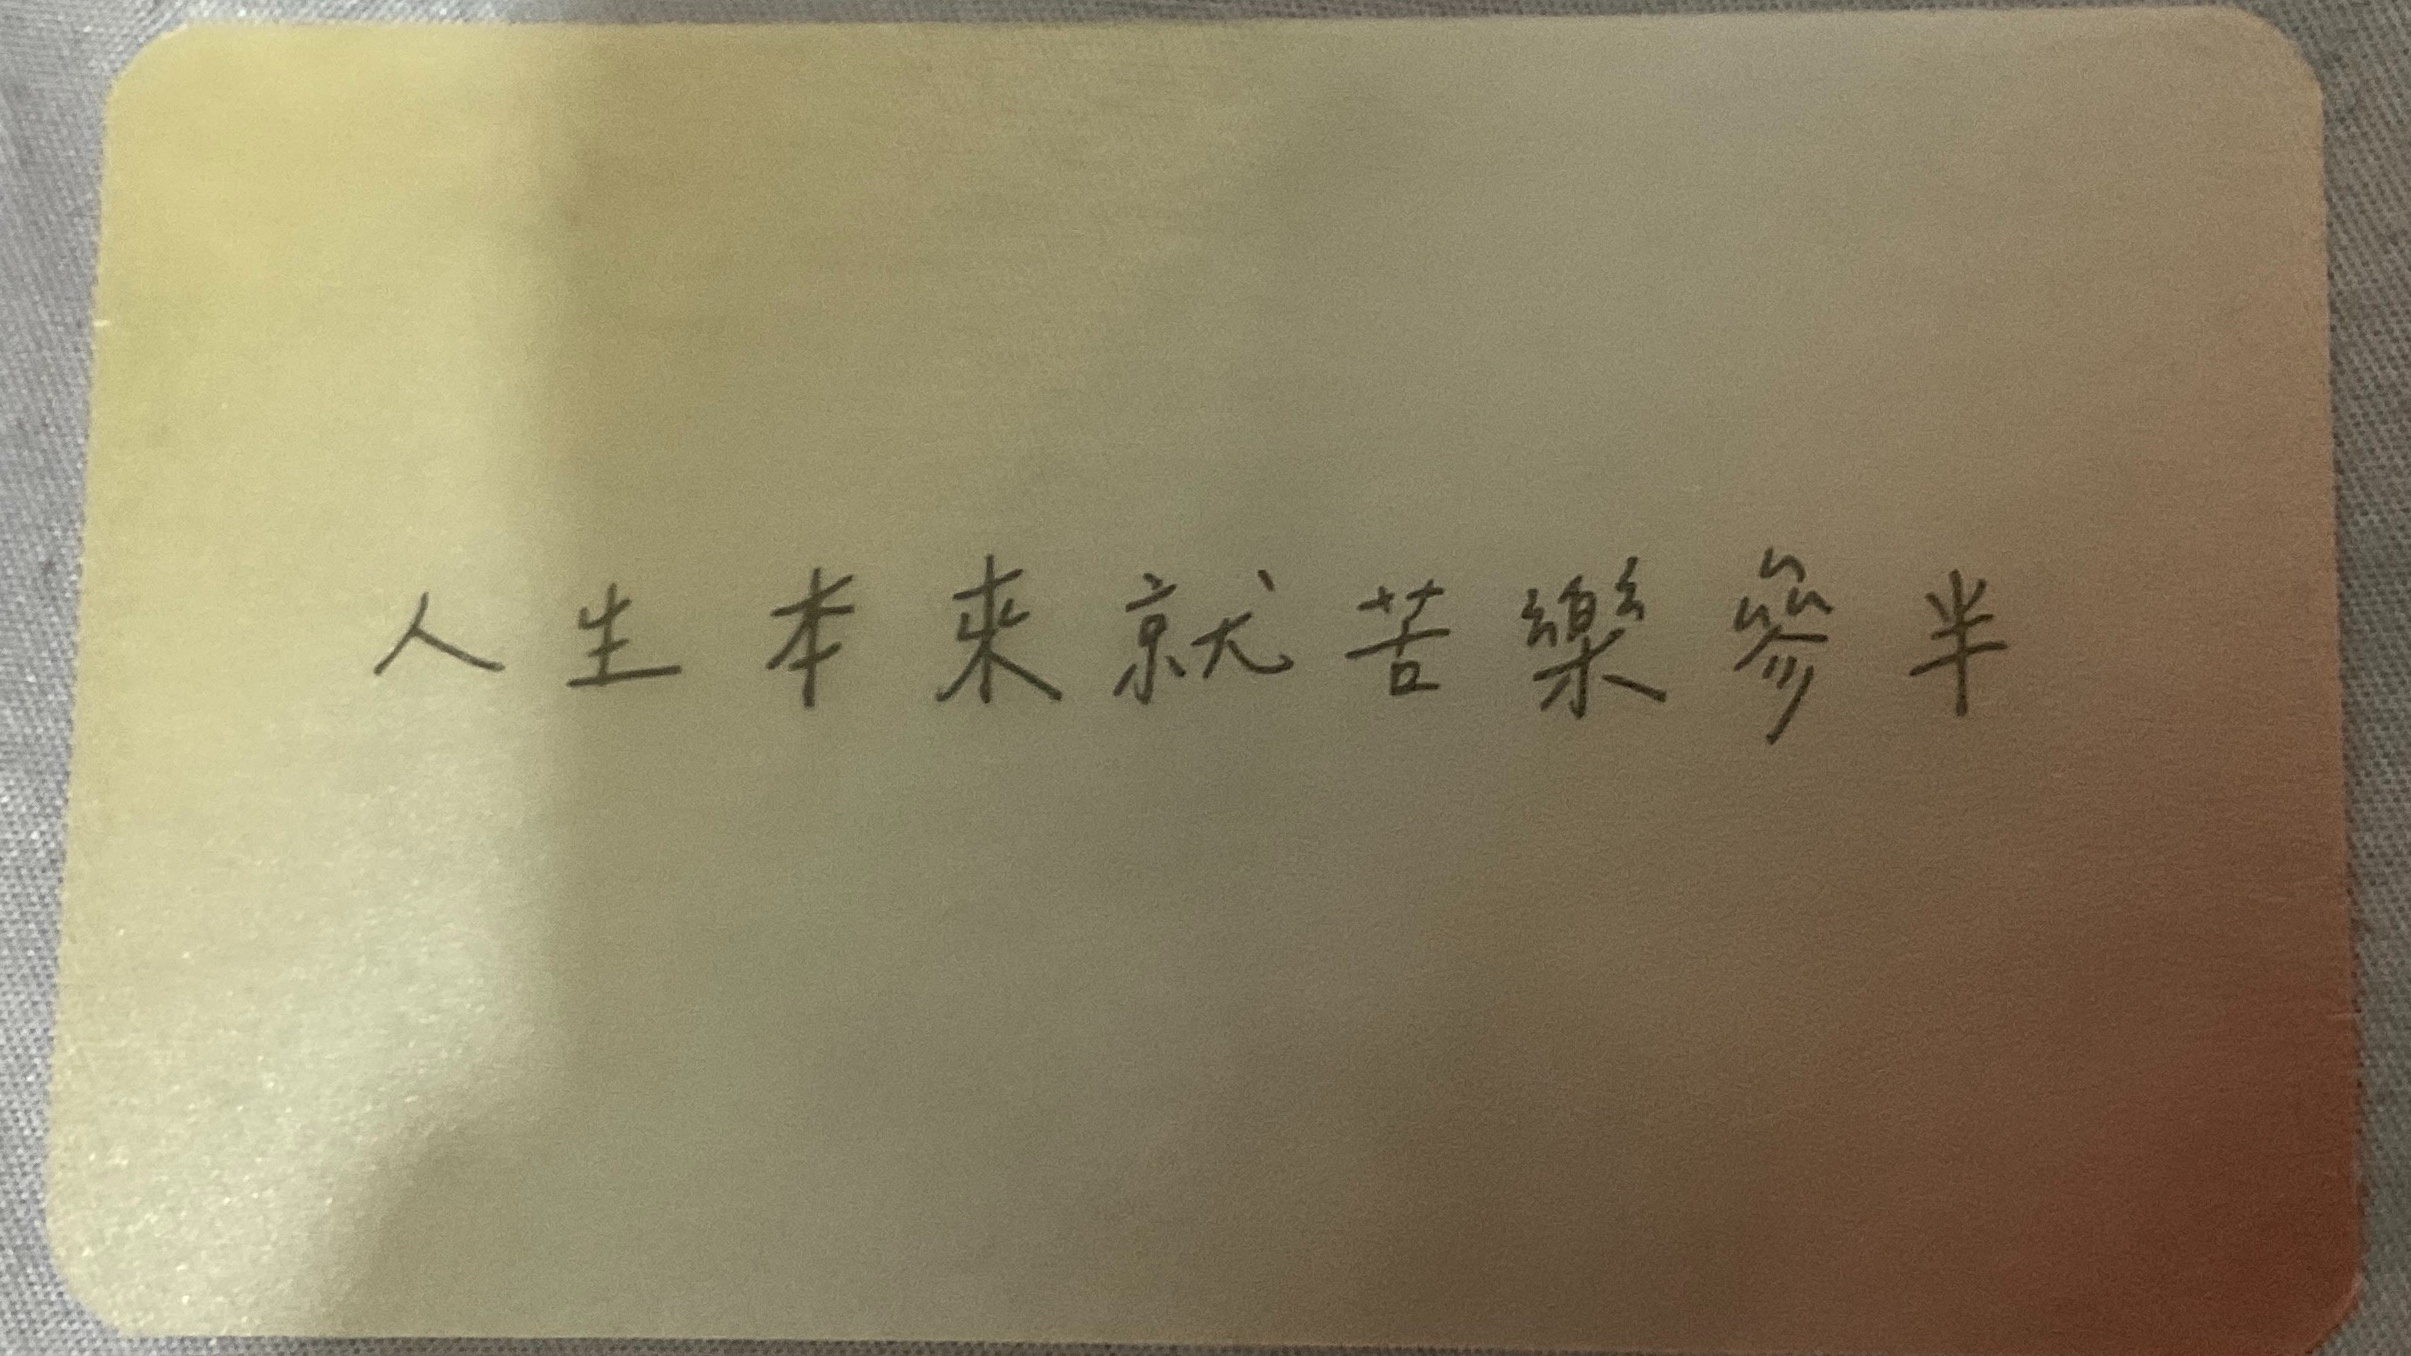 人生本來就苦樂參半